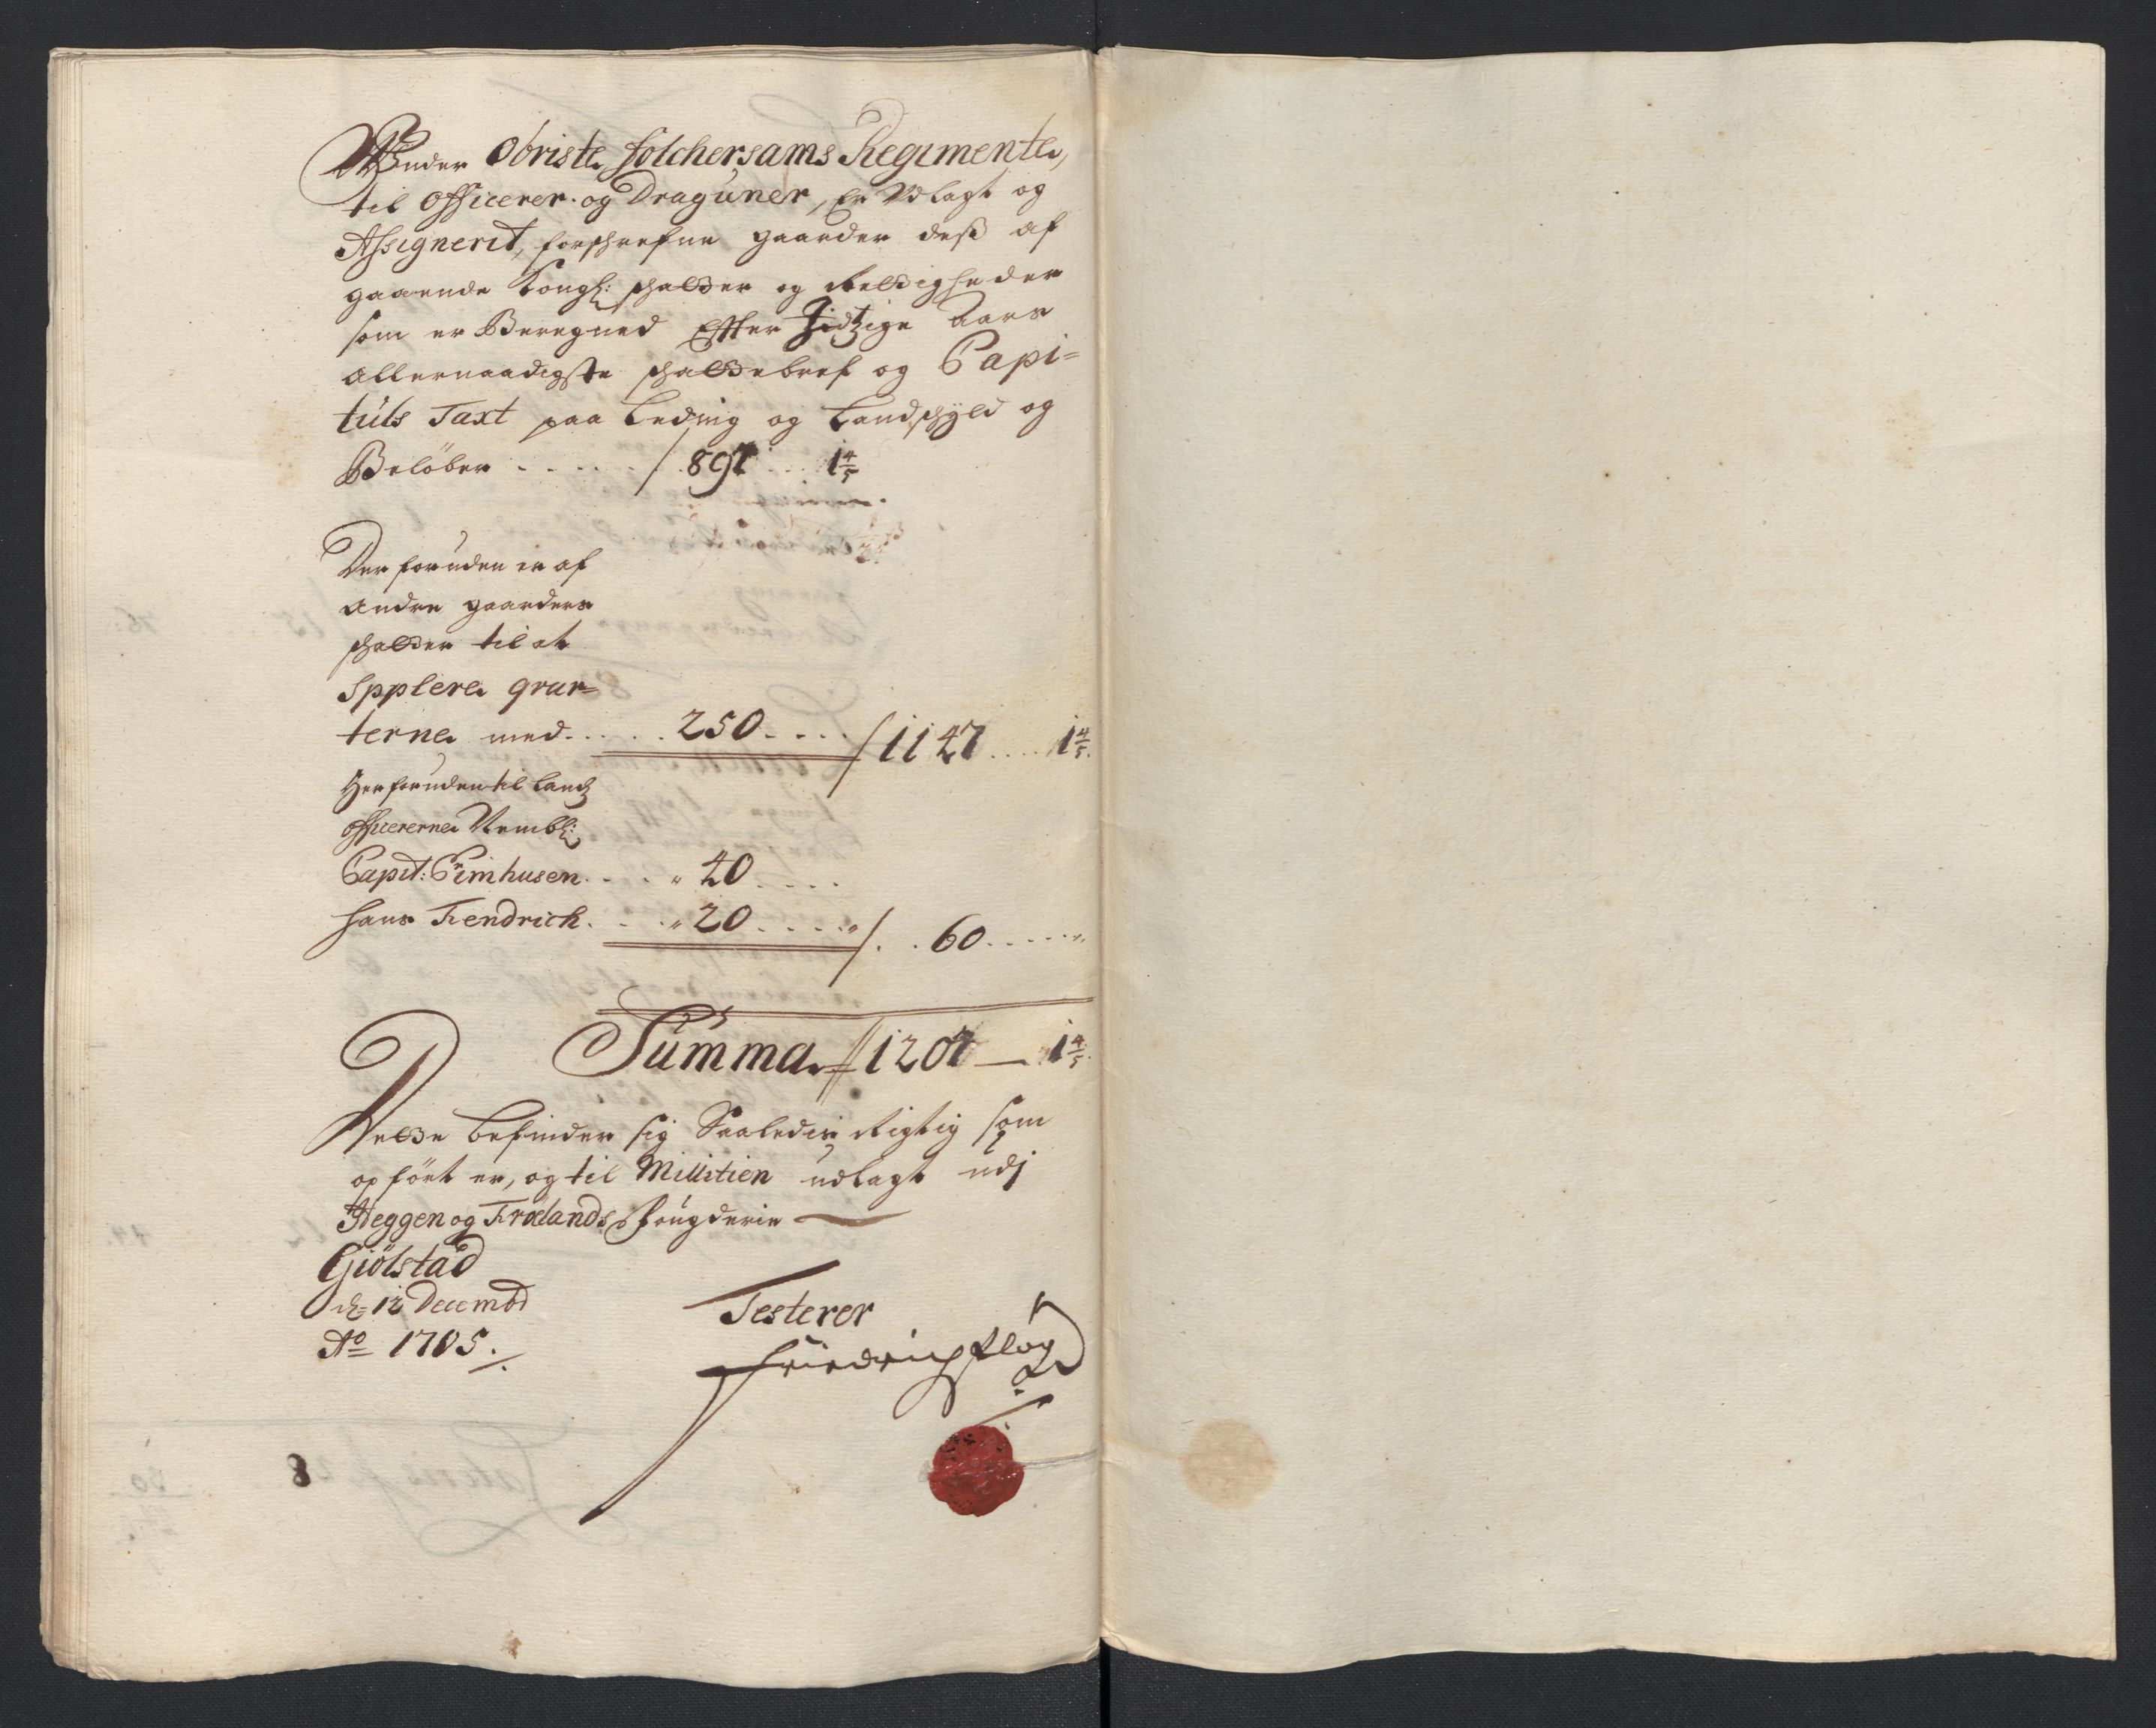 Under Obriste folchersams Regimente,
til Officerer og Draguner, Er Udlagt og
Assignerit, forschrefne gaarder dess af
gaaende Kongl: schatter og Rettigheder
som er Beregned Efter Jidtzige Aars
allernaadigste schattebref og Capi=
tuls Taxt paa Leding og Landschyld og
Beløber . . . . . 897 . . . 1 4/5
Der foruden er af
andre gaarders
schatter til at
Spplere qvar=
terne med . . . . 250 . . . . 1147 . . . . 1 4/5.
Herforuden til Landz
officererne Nembl:
Capit: Crimhusen . . . " 40 . . . .
hans Fendrich . . . " 20 . . . . " . . 60 . . . . . "
Summa 1207 — 1 4/5.
Dette befinder sig Saaledis Rigtig som
opført er, og til Militien udlagt udj
Heggen og Frølands Fougderie
Giölstad
d= 12 Decembr
Ao 1705.
Testerer
Friedrich Plög
8